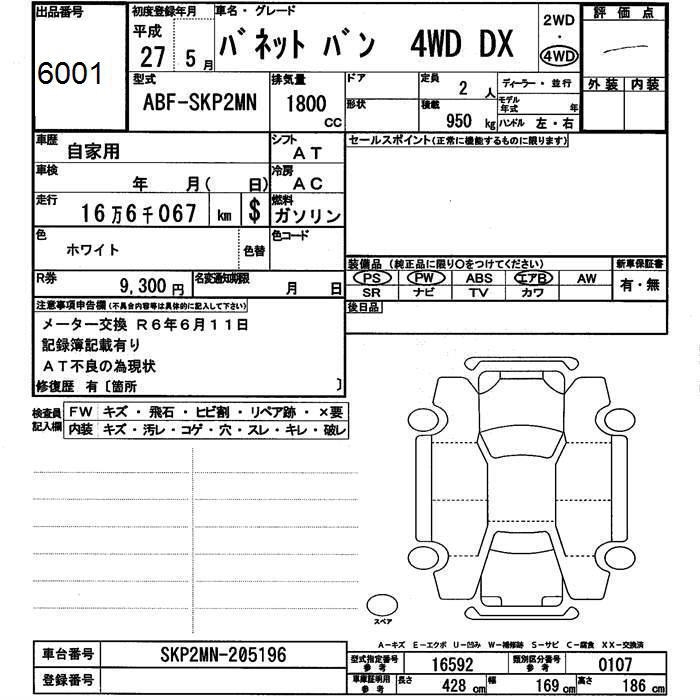 出品番号 初度登録年月 車名・グレード 2WD 評価点
6001 平成 27 5月 バネット バン 4WD DX ・ 4WD
型式 排気量 ドア 定員 ディーラー・並行 外装 内装
ABF-SKP2MN 1800 cc 形状 2人 モデル年式 年
積載 950 kg ハンドル 左・右
車歴 自家用 シフト AT セールスポイント(正常に機能するものに限ります)
車検 年 月( 日) 冷房 AC
走行 16万6千067 km $ 燃料 ガソリン
色 ホワイト 色替 色コード
装備品(純正品に限り○をつけてください) 新車保証書
R券 9,300円 名変通知期限 月 日 PS PW ABS エアB AW 有・無
SR ナビ TV カワ
注意事項申告欄(不具合内容等は具体的に記入して下さい) 後日品
メーター交換 R6年6月11日
記録簿記載有り
AT不良の為現状
修復歴 有〔箇所 〕
検査員記入欄 FW キズ・飛石・ヒビ割・リペア跡・×要
内装 キズ・汚レ・コゲ・穴・スレ・キレ・破レ
スペア
A-キズ E-エクボ U-凹み W-補修跡 S-サビ C-腐食 XX-交換済
車台番号 SKP2MN-205196 型式指定番号参考 16592 類別区分番号参考 0107
登録番号 車庫証明用参考 長さ 428 cm 幅 169 cm 高さ 186 cm